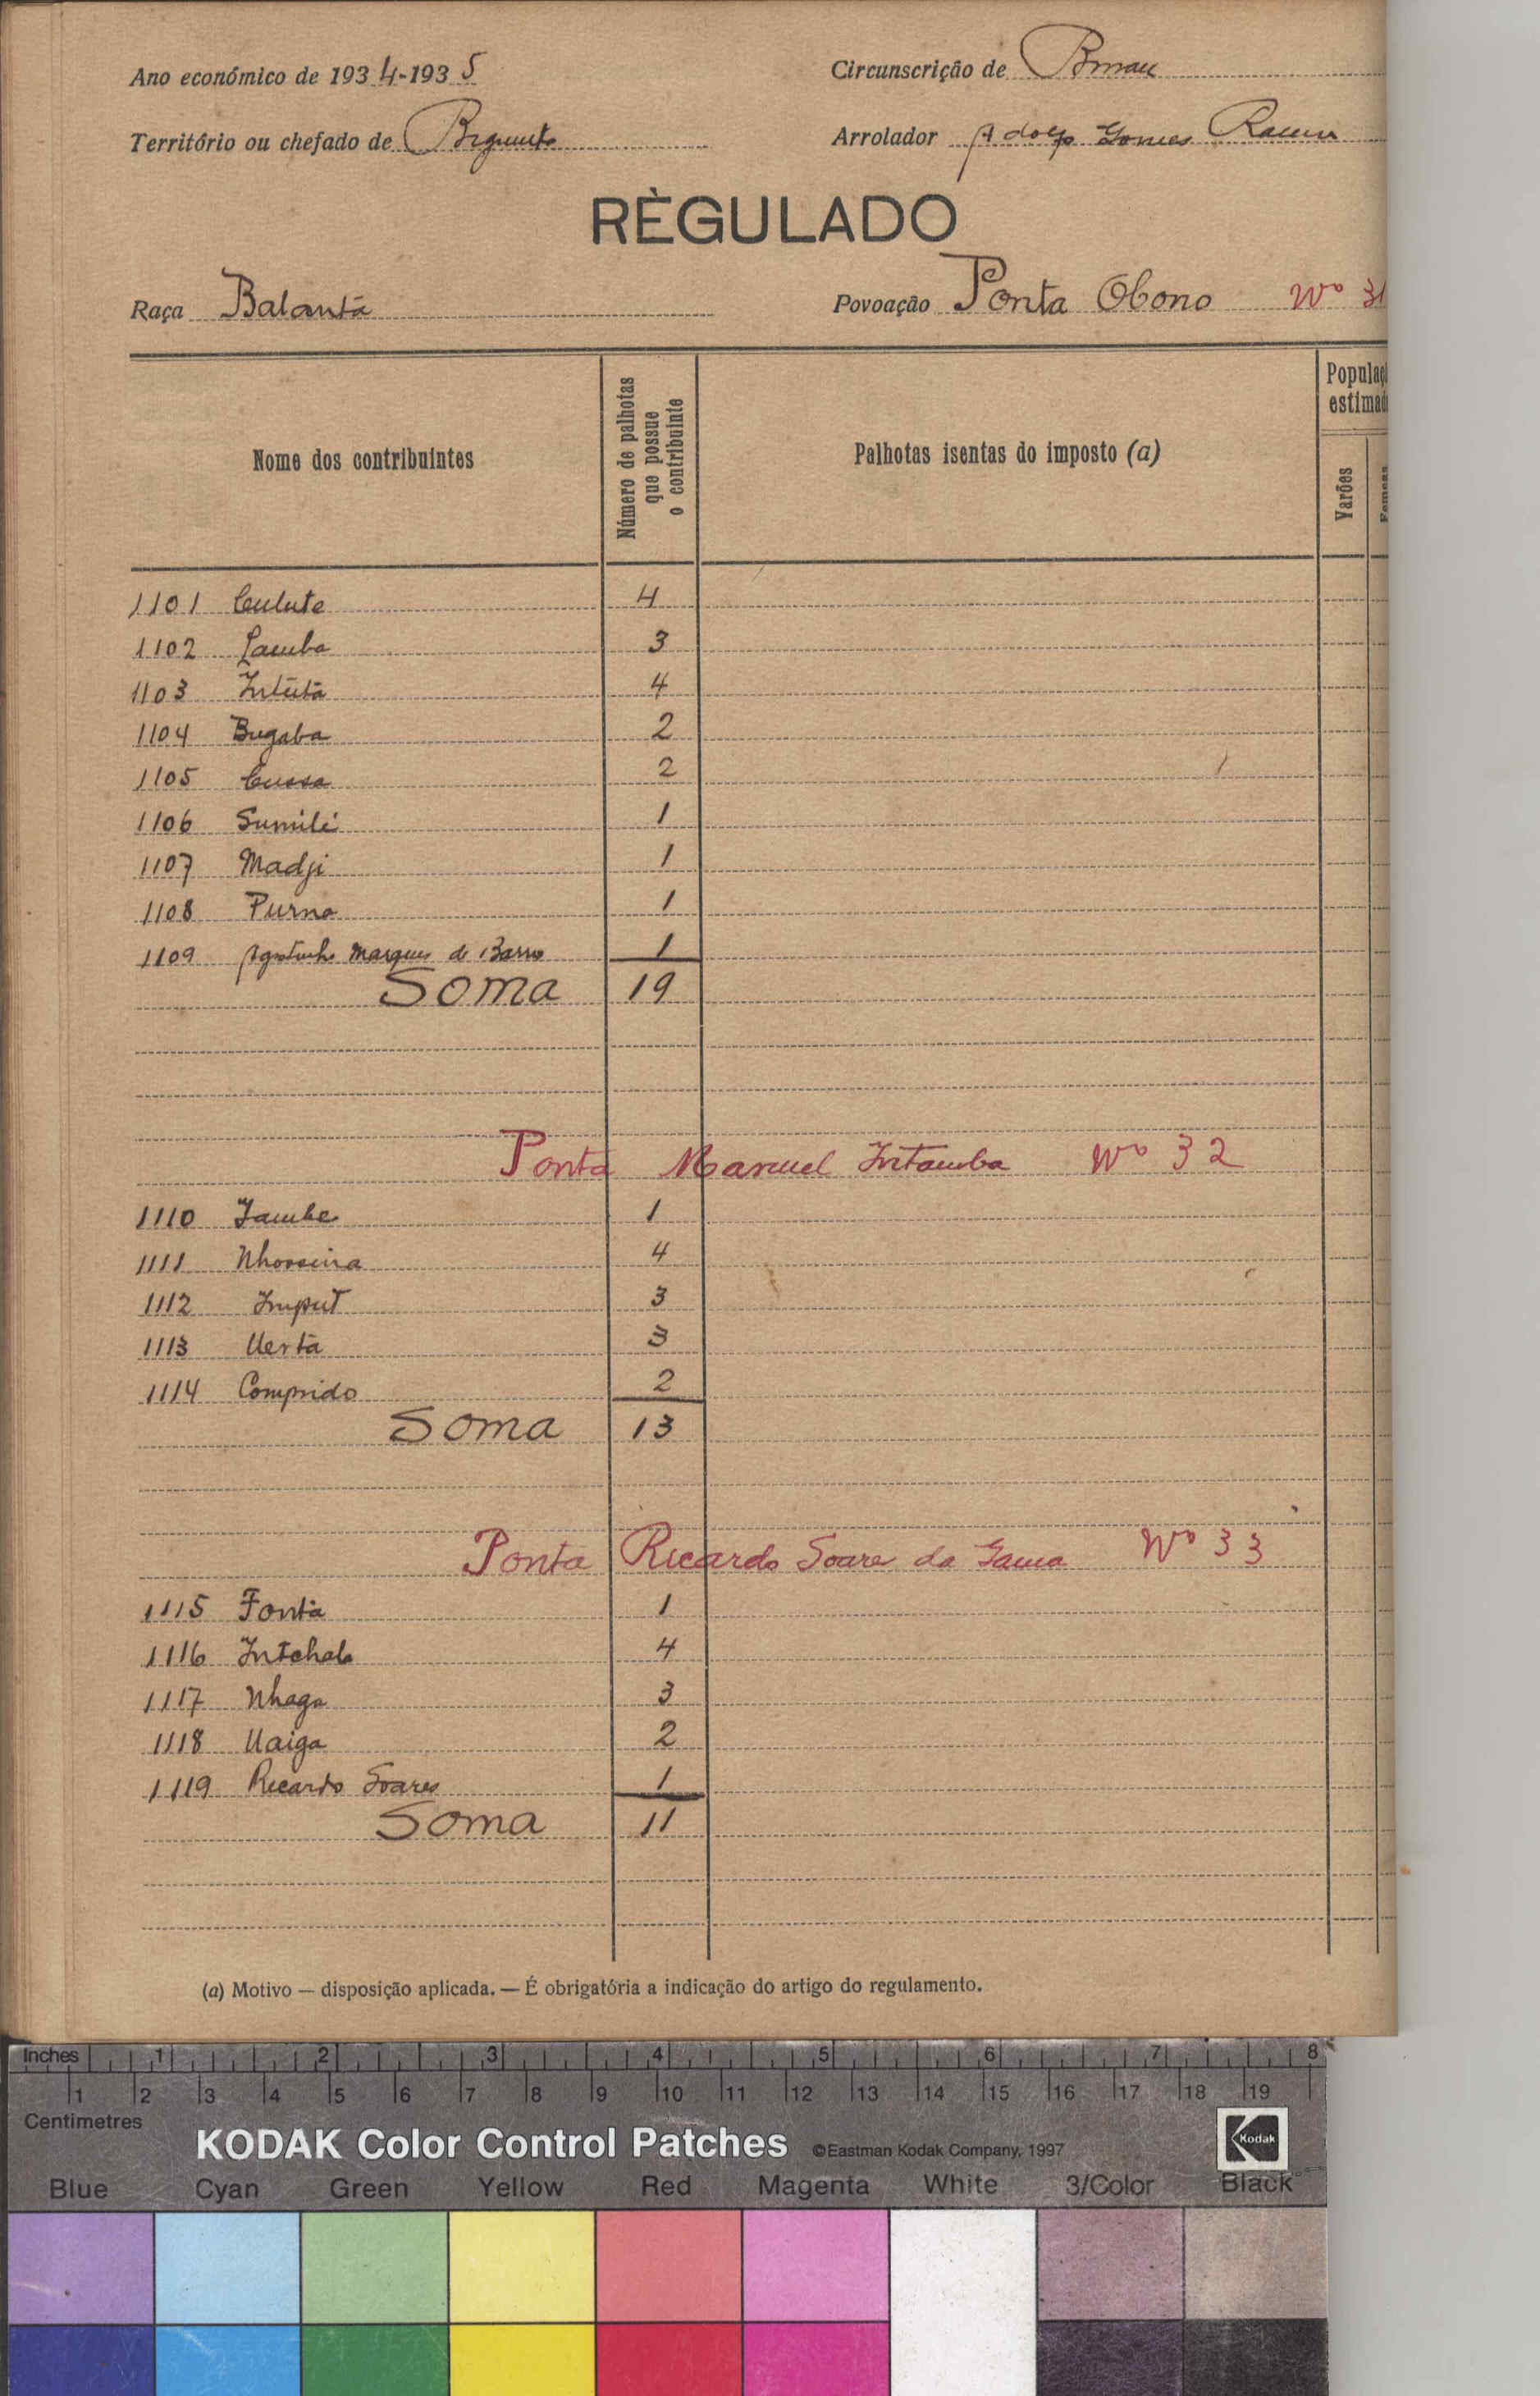 Ano económico de 1934-1935
Circunscrição de
Território ou chefado de
Arrolador Adolfo Gomes
RÈGULADO
Raça Balanta
Povoação Ponta Obono Nº 31
Nome dos contribuintes
Número de palhotas que possue o contribuinte
Palhotas isentas do imposto (a)
Populaç
estimad
Varões
1101 Culute 4
1102 Lamba 3
1103 Intutá 4
1104 Bugaba 2
1105 Cussa 2
1106 Sumilé 1
1107 Madji 1
1108 Purna 1
1109 Agostinho Marques de Barros 1
Soma 19
Ponta Manuel Intamba Nº 32
1110 Jambe 1
1111 4
1112 Input 3
1113 Uertá 3
1114 Comprido 2
Soma 13
Ponta Ricardo Soares da Gama Nº 33
1115 Fontá 1
1116 Intchala 4
1117 Nhaga 3
1118 Uaiga 2
1119 Ricardo Soares 1
Soma 11
(a) Motivo — disposição aplicada. — É obrigatória a indicação do artigo do regulamento.
Inches 1 2 3 4 5 6 7 8
1 2 3 4 5 6 7 8 9 10 11 12 13 14 15 16 17 18 19
Centimetres
KODAK Color Control Patches ©Eastman Kodak Company, 1997 Kodak
Blue Cyan Green Yellow Red Magenta White 3/Color Black